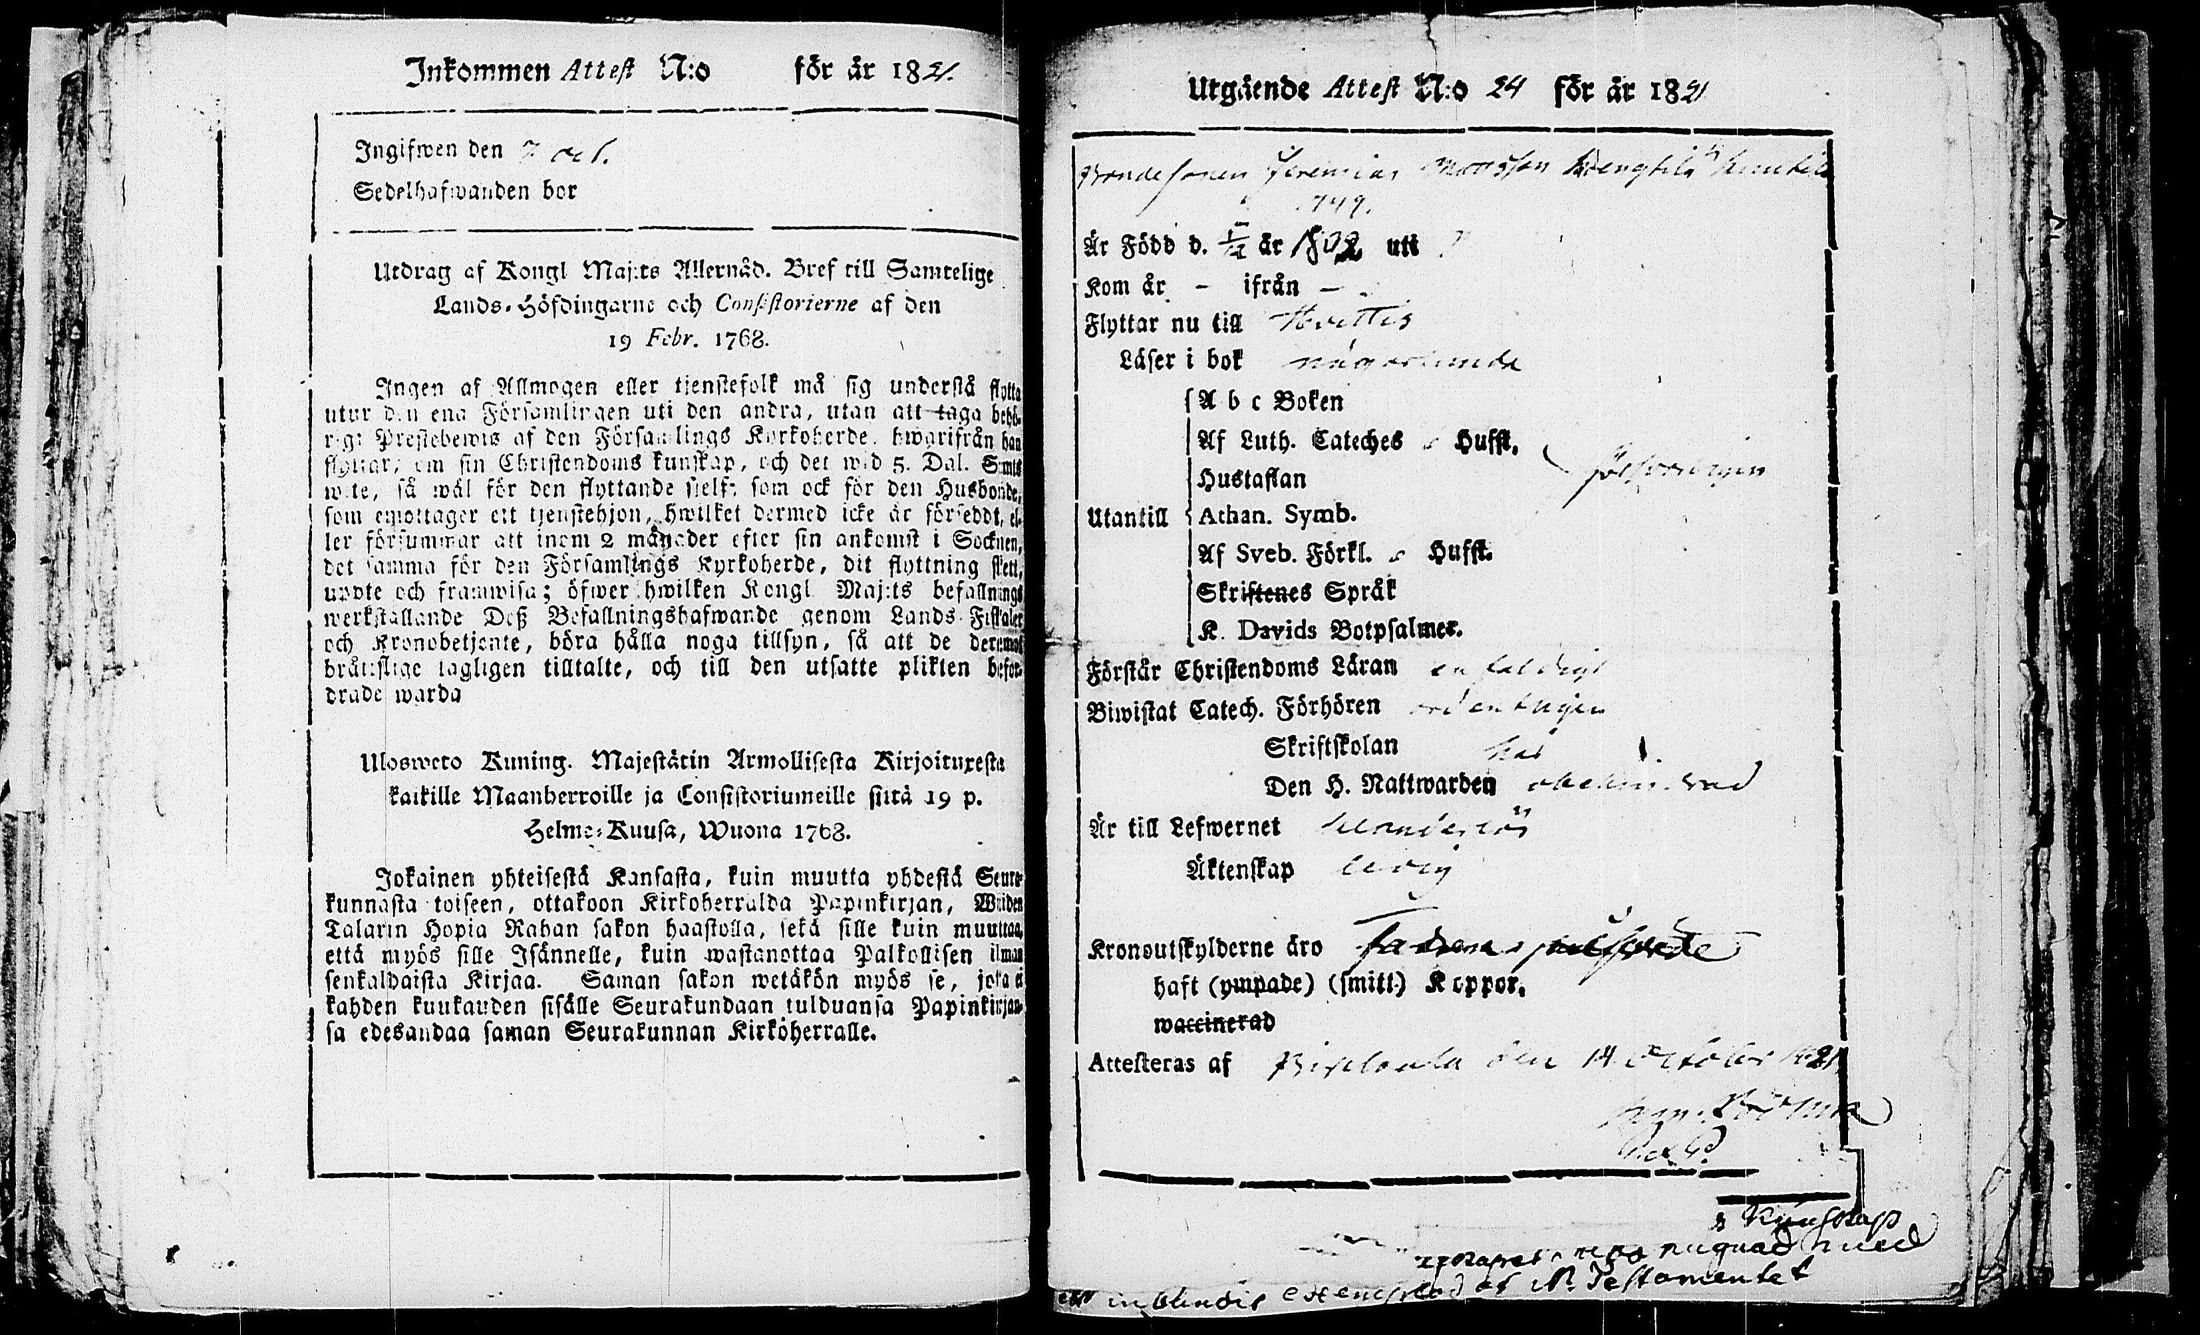 Inkommen Attest N:o för år 1821.
Ingifwen den 7 oct.
Sedelhafwanden bor
Utdrag af Kongl Maj:ts Allernåd. Bref till Samtelige
Lands-Höfdingarne och Consistorierne af den
19 Febr. 1768.
Ingen af Allmogen eller tjenstefolk må sig understå flytta
utur den ena Församlingen uti den andra, utan att taga behö-
rigt Prestebewis af den Församlings Kyrkoherde, hwarifrån han
flyttar, om sin Christendoms kunskap, och det wid 5. Dal. S:mts
wite, så wäl för den flyttande sjelf, som ock för den Husbonde,
som emottager ett tjenstehjon, hwilket dermed icke är försedt, el-
ler försummar att inom 2 månader efter sin ankomst i Socknen,
det samma för den Församlings Kyrkoherde, dit flyttning skett,
uppte och framwisa; öfwer hwilken Kongl Maj:ts befallnings
werkställande Deß Befallningshafwande genom Lands Fiskaler
och Kronobetjente, böra hålla noga tillsyn, så att de deremot
bråttslige lagligen tilltalte, och till den utsatte plikten befor-
drade warda
Ulosweto Kuning. Majestätin Armollisesta Kirjoituxesta
kaikille Maanherroille ja Consistoriumeille siitä 19 p.
Helme-Kuusa, Wuona 1768.
Jokainen yhteisestä Kansasta, kuin muutta yhdestä Seura-
kunnasta toiseen, ottakoon Kirkoherralda Papinkirjan, Wiiden
Talarin Hopia Rahan sakon haastolla, sekä sille kuin muuttaa,
että myös sille Isännelle, kuin wastanottaa Palkollisen ilman
senkaldaista Kirjaa. Saman sakon wetäkön myös se, joka ei
kahden kuukauden sisälle Seurakundaan tulduansa Papinkirjan-
sa edesandaa saman Seurakunnan Kirköherralle.
Utgående Attest N:o 24 för år 1821
Bondesonen Jeremias Mattsson
1749.
Är Född d. år 1802 uti
Kom år - ifrån -
Flyttar nu till Hvittis
Läser i bok någorlunda
A b c Boken
Af Luth. Cateches Husst.
Hustaflan försvarligen
Utantill Athan. Symb.
Af Sveb. Förkl. Husst.
Skriftenes Språk
K. Davids Botpsalmer.
Förstår Christendoms Läran enfaldigt
Biwistat Catech. Förhören ordentligen
Skriftskolan här
Den H. Nattwarden obehindrad
Är till Lefwernet
Äktenskap ledig
Kronoutskylderne äro
haft (ympade) (smitt.) Koppor.
waccinerad
Attesteras af Birkkala den 14 October 1821.
s Kunskap
med
exemplar af N. Testamentet